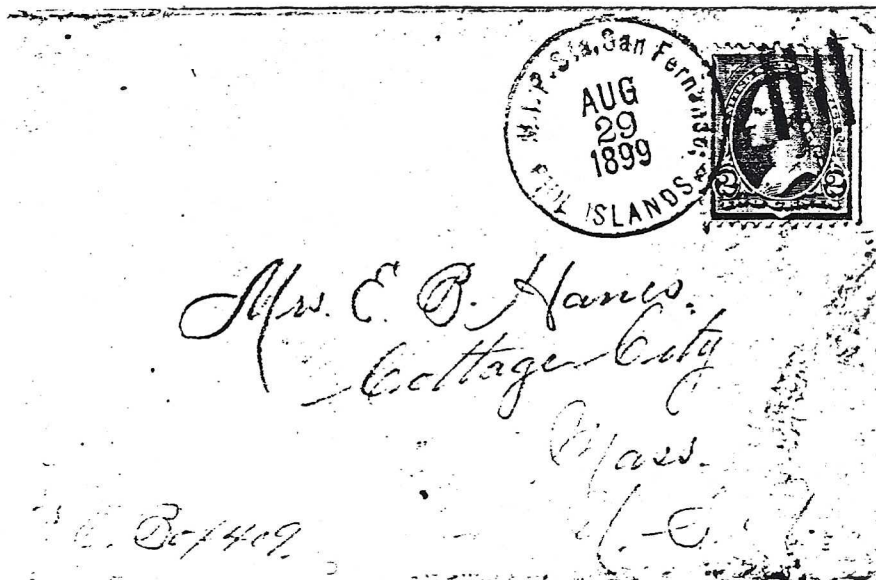 M.I.P. Sta, San Fernando,
AUG
29
1899
PHIL ISLANDS.
2 2
Mrs. E. B. Hanes.
Cottage City
Mass.
U.-S.A.
P. O. Box 409.